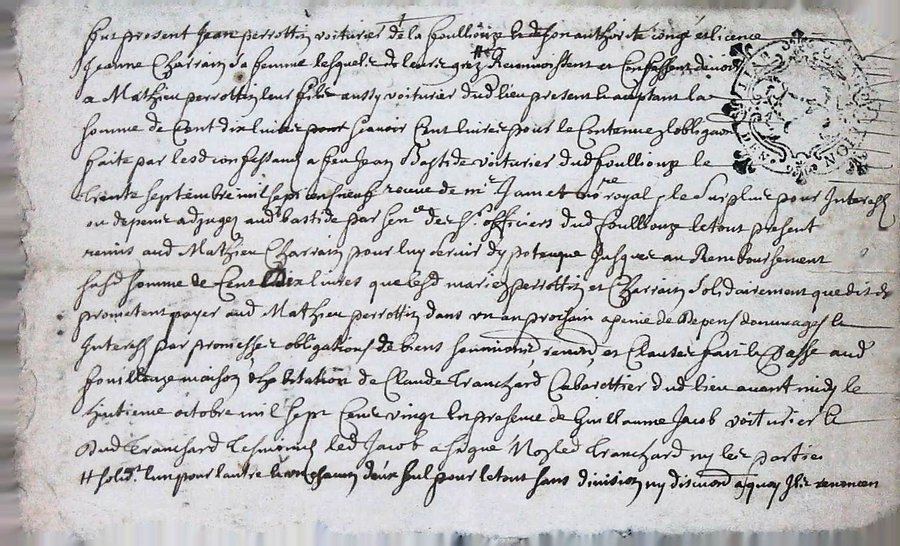 fut present Jean perrottin voiturier de la fouillouze & de son authorité congé et licence
Jeanne Charrain sa femme lesquels de leurs grez # Recunnoissent et Confessent devoir
a Mathieu perrottin leur fils aussy voiturier dud lieu present & acceptant la
somme de Cent dix livres pour scavoir Cent livres pour le Contenu en lobligaon
faite par lesd confessants a feu Jean Bastide voiturier dud fouillouze le
trente septembre mil sept cens neuf receue de me Jamet nore royal, le surplus pour Interests
ou depens adjugez aud bastide par sence des srs officiers dud fouillouze le tout present
remis aud Mathieu Charrain pour luy servir dypoteque jusques au Remboursement
lasd somme de Cent dix livres que lesd mariez perrottin et Charrain solidairement que dit est
promettent payer aud Mathieu perrottin dans un an prochain a peine de depens dommages &
Interests par promesses obligations de biens soumions renons et Clauses fait & passe aud
fouillouze maison dhabitation de Claude tranchard Cabarottier dud lieu avant midy le
huitieme octobre mil sept Cent vingt En presence de Guillaume Jacob voiturier &
dud tranchard tesmoins led Jacob a signe Non led tranchard ny les parties
# solidt lun pour lautre & un chacun deux seul pour le tout sans division ny discution a quoy Ils renoncent